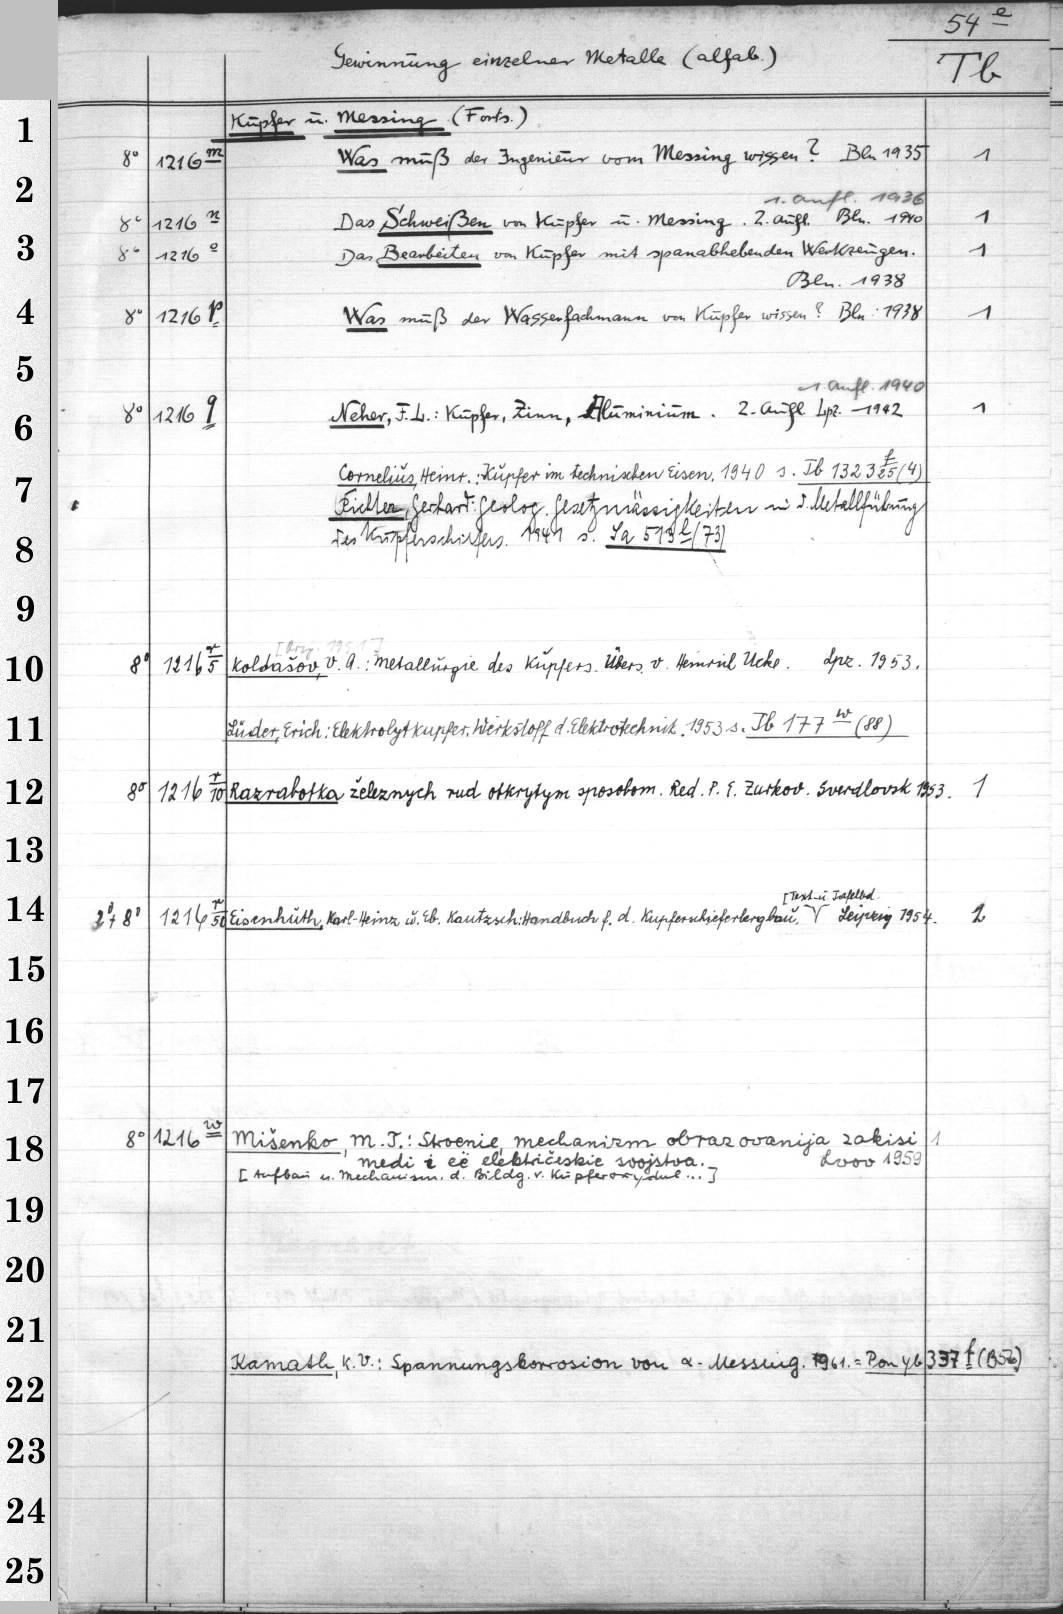 54 e
Gewinnung einzelner Metalle (alfab.)
Tb
1
Kupfer u. Messing (Forts.)
8° 1216 m Was muß der Ingenieur vom Messing wissen? Bln 1935 1
2
1. Aufl. 1936
8° 1216 n Das Schweißen von Kupfer u. Messing. 2. Aufl. Bln. 1940 1
3
8° 1216 o Das Bearbeiten von Kupfer mit spanabhebenden Werkzeugen. 1
Bln. 1938
4
8° 1216 p Was muß der Wasserfachmann von Kupfer wissen? Bln. 1938 1
5
1. Aufl. 1940
6
8° 1216 q Neher, F. L.: Kupfer, Zinn, Aluminium. 2. Aufl Lpz. 1942 1
7
Cornelius, Heinr.: Kupfer im technischen Eisen. 1940 s. Tb 1323 f/25 (4)
Richter, Gerhard: Geolog. Gesetzmässigkeiten in d. Metallführung
8
des Kupferschiefers. 1941 s. Sa 513 l (73)
9
10
8° 1216 r/5 Koldašov, V. A.: Metallurgie des Kupfers. Übers. v. Heinrich Ucke. Lpz. 1953.
11
Lüder, Erich: Elektrolytkupfer, Werkstoff d. Elektrotechnik. 1953 s. Tb 177 w (88)
12
8° 1216 r/10 Razrabotka železnych rud otkrytym sposobom. Red. P. E. Zurkov. Sverdlovsk 1953. 1
13
[Text- u. Tafelbd.
14
2° + 8° 1216 r/50 Eisenhuth, Karl-Heinz u. Eb. Kautzsch: Handbuch f. d. Kupferschieferbergbau. Leipzig 1954. 2
15
16
17
18
8° 1216 w Mišenko, M. T.: Stroenie, mechanizm obrazovanija zakisi 1
medi i eë električeskie svojstva. Lvov 1959
[Aufbau u. Mechanism. d. Bildg. v. Kupferoxydul ...]
19
20
21
Kamath, K. V.: Spannungskorrosion von α-Messing. 1961. = Pon Yb 337 f (B56)
22
23
24
25